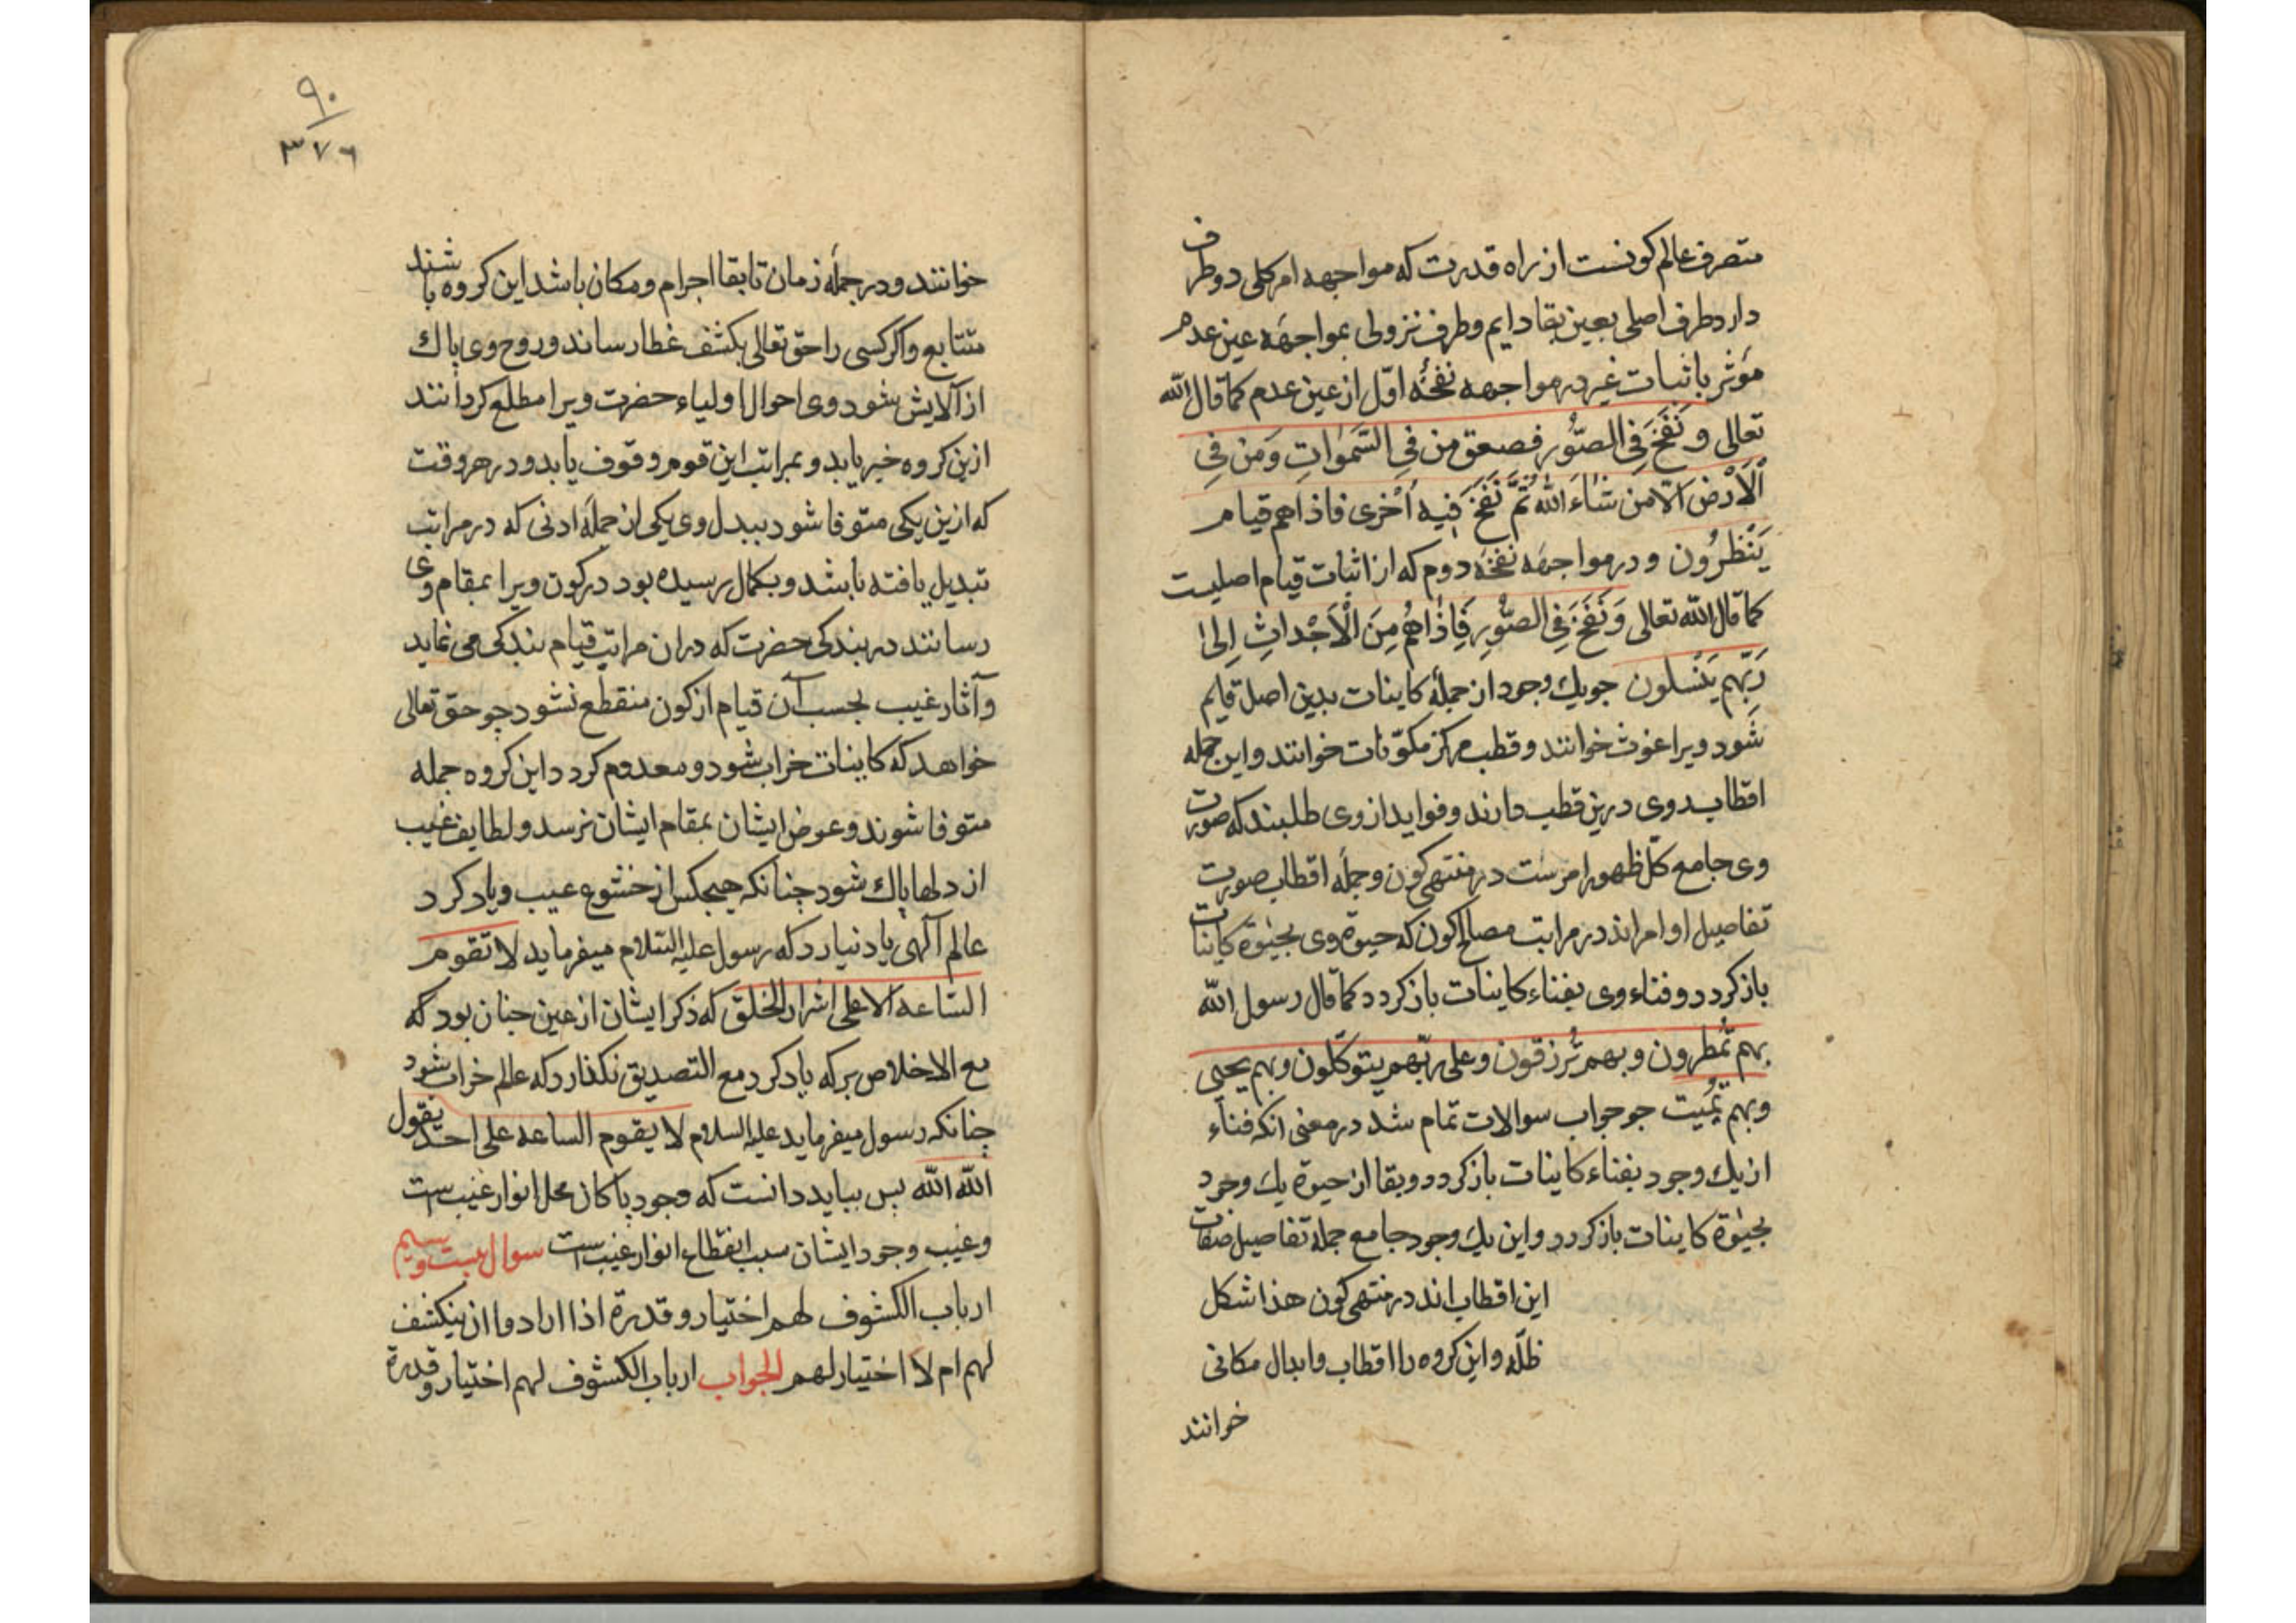 متصرف عالم کونست از راه قدرت که مواجهه امر کلی دو طرف
دارد طرف اصلی بعین بقا دایم و طرف نزولی بمواجهه عین عدم
مؤثر باثبات غیر در مواجهه نفخهٔ اوّل از عین عدم کما قال الله
تعالی و نَفَخَ فِی الصُّور فصعق من فِی السَّمٰوٰاتِ وَمَن فِی
الْاَرْضِ الّا من شٰاءَ اللهُ ثُمَّ نَفَخَ فیه اُخْرٰی فاذاهم قیام
یَنْظُرُون و در مواجهه نفخهٔ دوم که از اثبات قیام اصلیست
کما قال الله تعالی وَنَفَخَ فِی الصُّورِ فَاِذٰاهُم مِنَ الْاَجْداثِ اِلیٰ
رَبِّهِم یَنْسلون جو یك وجود از جملهٔ کاینات بدین اصل قایم
شود ویرا غوث خوانند و قطب مرکز مکوّنات خوانند و این جمله
اقطاب وی درین قطب دارند و فواید از وی طلبند که صورت
وی جامع کلّ ظهور امرست در منتهی کون و جملهٔ اقطاب صورت
تفاصیل اوامراند در مراتب مصالح کون که حیوة وی بحیٰوة کاینات
باز کردد و فناء وی بفناء کاینات باز کردد کما قال رسول الله
بهم تُمطرون و بهم تُرزقون و علی ربّهم یتوکّلون و بهم یحیی
و بهم تُمیت جو جواب سوالات تمام شد در معنی انکه فناء
از یك وجود بفناء کاینات باز کردد و بقا از حیوة یك وجود
بحیٰوة کاینات باز کردد و این یك وجود جامع جملهٔ تفاصیل صفات
این اقطاب اند در منتهی کون هذا شکل
ظلّه و این کروه را اقطاب و ابدال مکانی
خوانند
۹۰
۳۷۶
خوانند و در جملهٔ زمان تا بقا اجرام و مکان باشد این کروه باشند
متتابع و اکر کسی را حق تعالی بکشف غطا رساند و روح وی پاك
از آلایش شود وی احوال اولیاء حضرت ویرا مطلع کردانند
ازین کروه خبر یابد و بمراتب این قوم وقوف یابد و در هر وقت
که ازین یکی متوفا شود ببدل وی یکی از جملهٔ ادنی که در مراتب
تبدیل یافته باشد و بکمال رسیده بود در کون ویرا بمقام وی
رسانند در بندکی حضرت که در ان مراتب قیام بندکی می نماید
و آثار غیب بحسب آن قیام از کون منقطع نشود جو حق تعالی
خواهد که کاینات خراب شود و معدوم کردد این کروه جمله
متوفا شوند و عوض ایشان بمقام ایشان نرسد و لطایف غیب
از دلها پاك شود جنانکه هیجکس از خشوع عیب و یاد کرد
عالم آلهی یاد نیارد که رسول علیه السّلام میفرماید لا تقوم
السّاعه الا علی اشرار الخلق که ذکر ایشان از عین جنان بود که
مع الاخلاص بر که یاد کرد مع التصدیق نکذارد که عالم خراب شود
جنانکه رسول میفرماید علیه السلام لا یقوم الساعه علی احد یقول
الله الله پس بباید دانست که وجود پاکان محل انوار غیب است
و غیب وجود ایشان سبب انقطاع انوار غیب است سوال بیست و سیم
ارباب الکشوف لهم اختیار و قدرة اذا ارادوا ان ینکشف
لهم ام لا اختیار لهم الجواب ارباب الکشوف لهم اختیار و قدرة